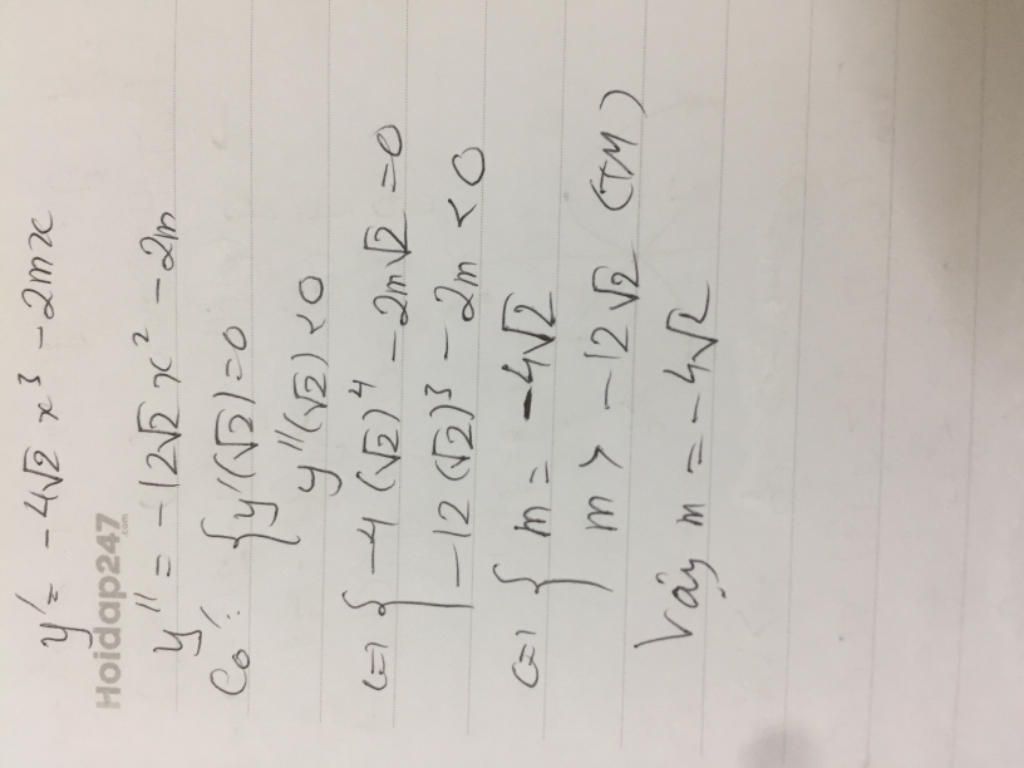 y' = -4√2 x³ - 2mx
Hoidap247.com
y'' = -12√2 x² - 2m
Có: { y'(√2) = 0
y''(√2) < 0
(=) { -4(√2)⁴ - 2m√2 = 0
-12(√2)³ - 2m < 0
(=) { m = -4√2
m > -12√2 (TM)
Vậy m = -4√2